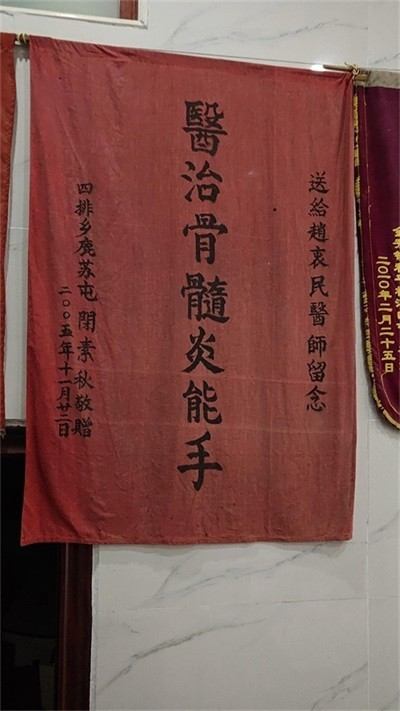 送給趙衷民醫師留念
醫治骨髓炎能手
四排乡虎苏屯閉素秋敬贈
二〇〇五年十一月廿二日
二〇一〇年二月二十五日